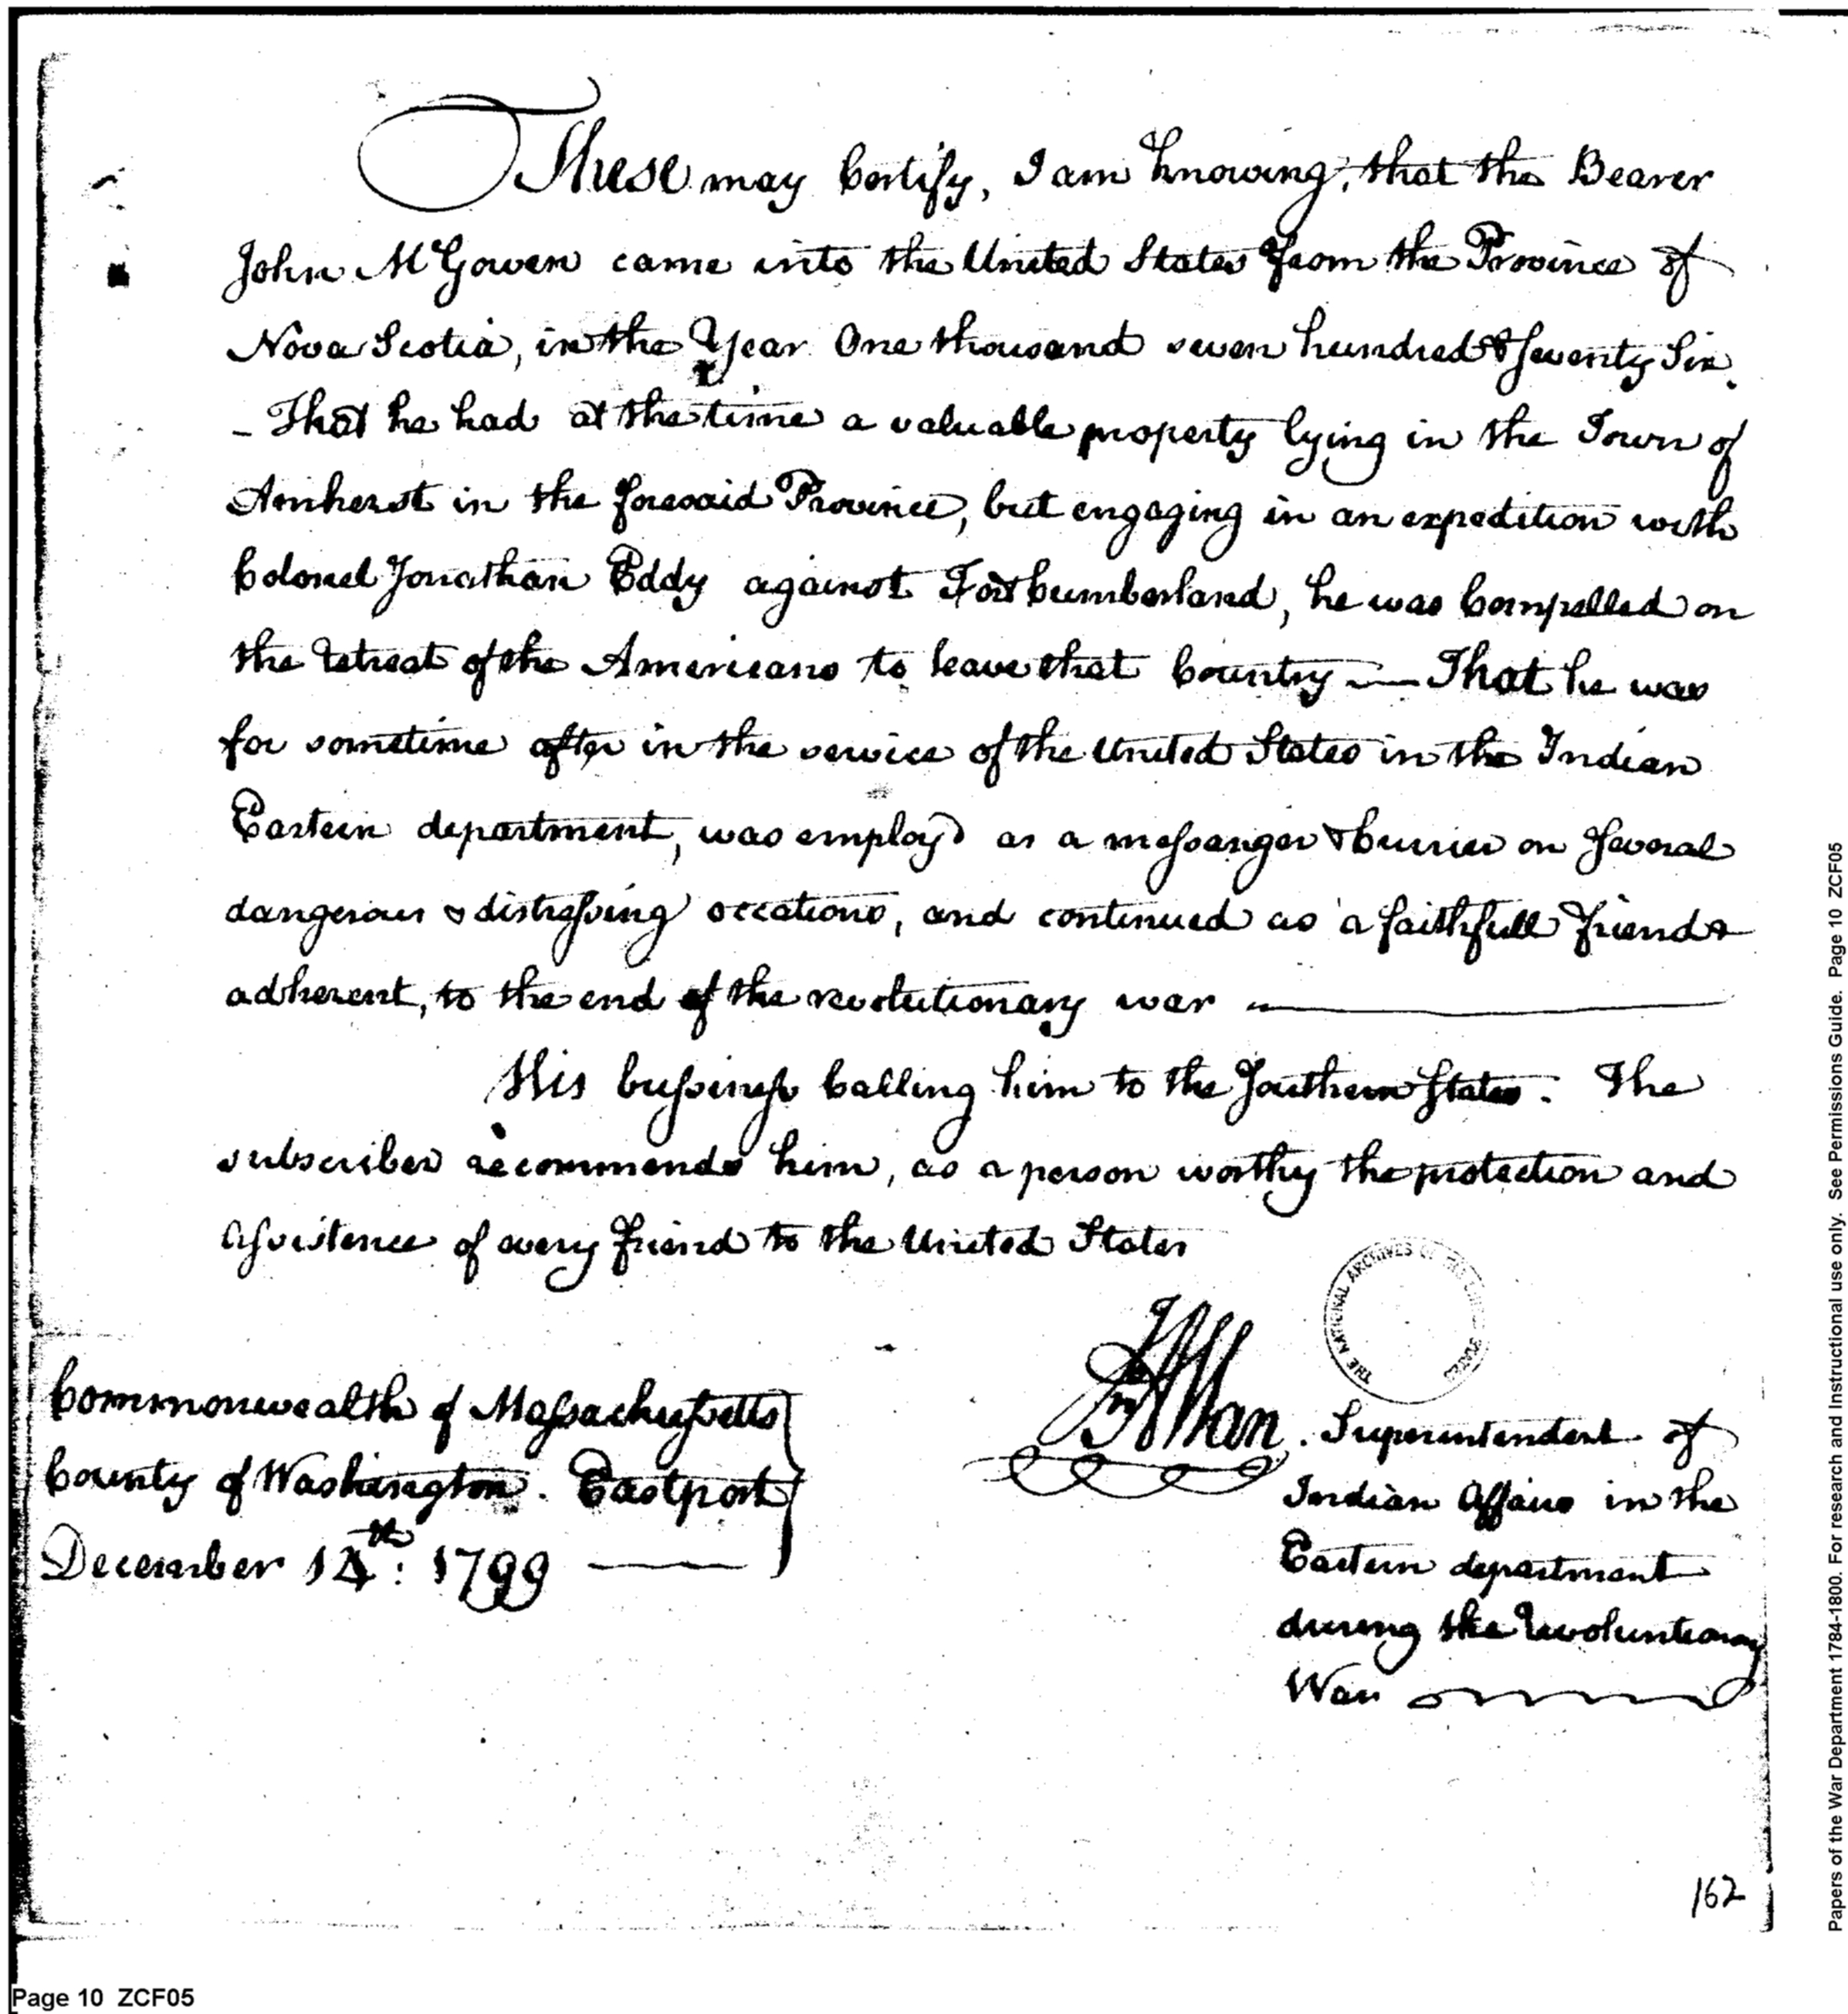 These may Certify, I am knowing, that the Bearer
John McGowen came into the United States from the Province of
Nova Scotia, in the Year One thousand seven hundred & Seventy Six.
- That he had at the time a valuable property lying in the Town of
Amherst in the foresaid Province, but engaging in an expedition with
Colonel Jonathan Eddy against Fort Cumberland, he was Compelled on
the retreat of the Americans to leave that Country — That he was
for sometime after in the service of the United States in the Indian
Eastern department, was employd as a messanger & Currier on Several
dangerous & distressing occations, and continued as a faithfull Friend &
adherent, to the end of the revolutionary war —
His bussiness Calling him to the Southern States. The
subscriber recommends him, as a person worthy the protection and
assistence of every Friend to the United States
THE NATIONAL ARCHIVES OF THE UNITED STATES
Commonwealth of Massachussetts
County of Washington. Eastport
December 14th: 1799 —
J Allan. Superintendent of
Indian Affairs in the
Eastern department
during the Revoluntionary
War
162
Page 10 ZCF05
Papers of the War Department 1784-1800. For research and Instructional use only. See Permissions Guide. Page 10 ZCF05